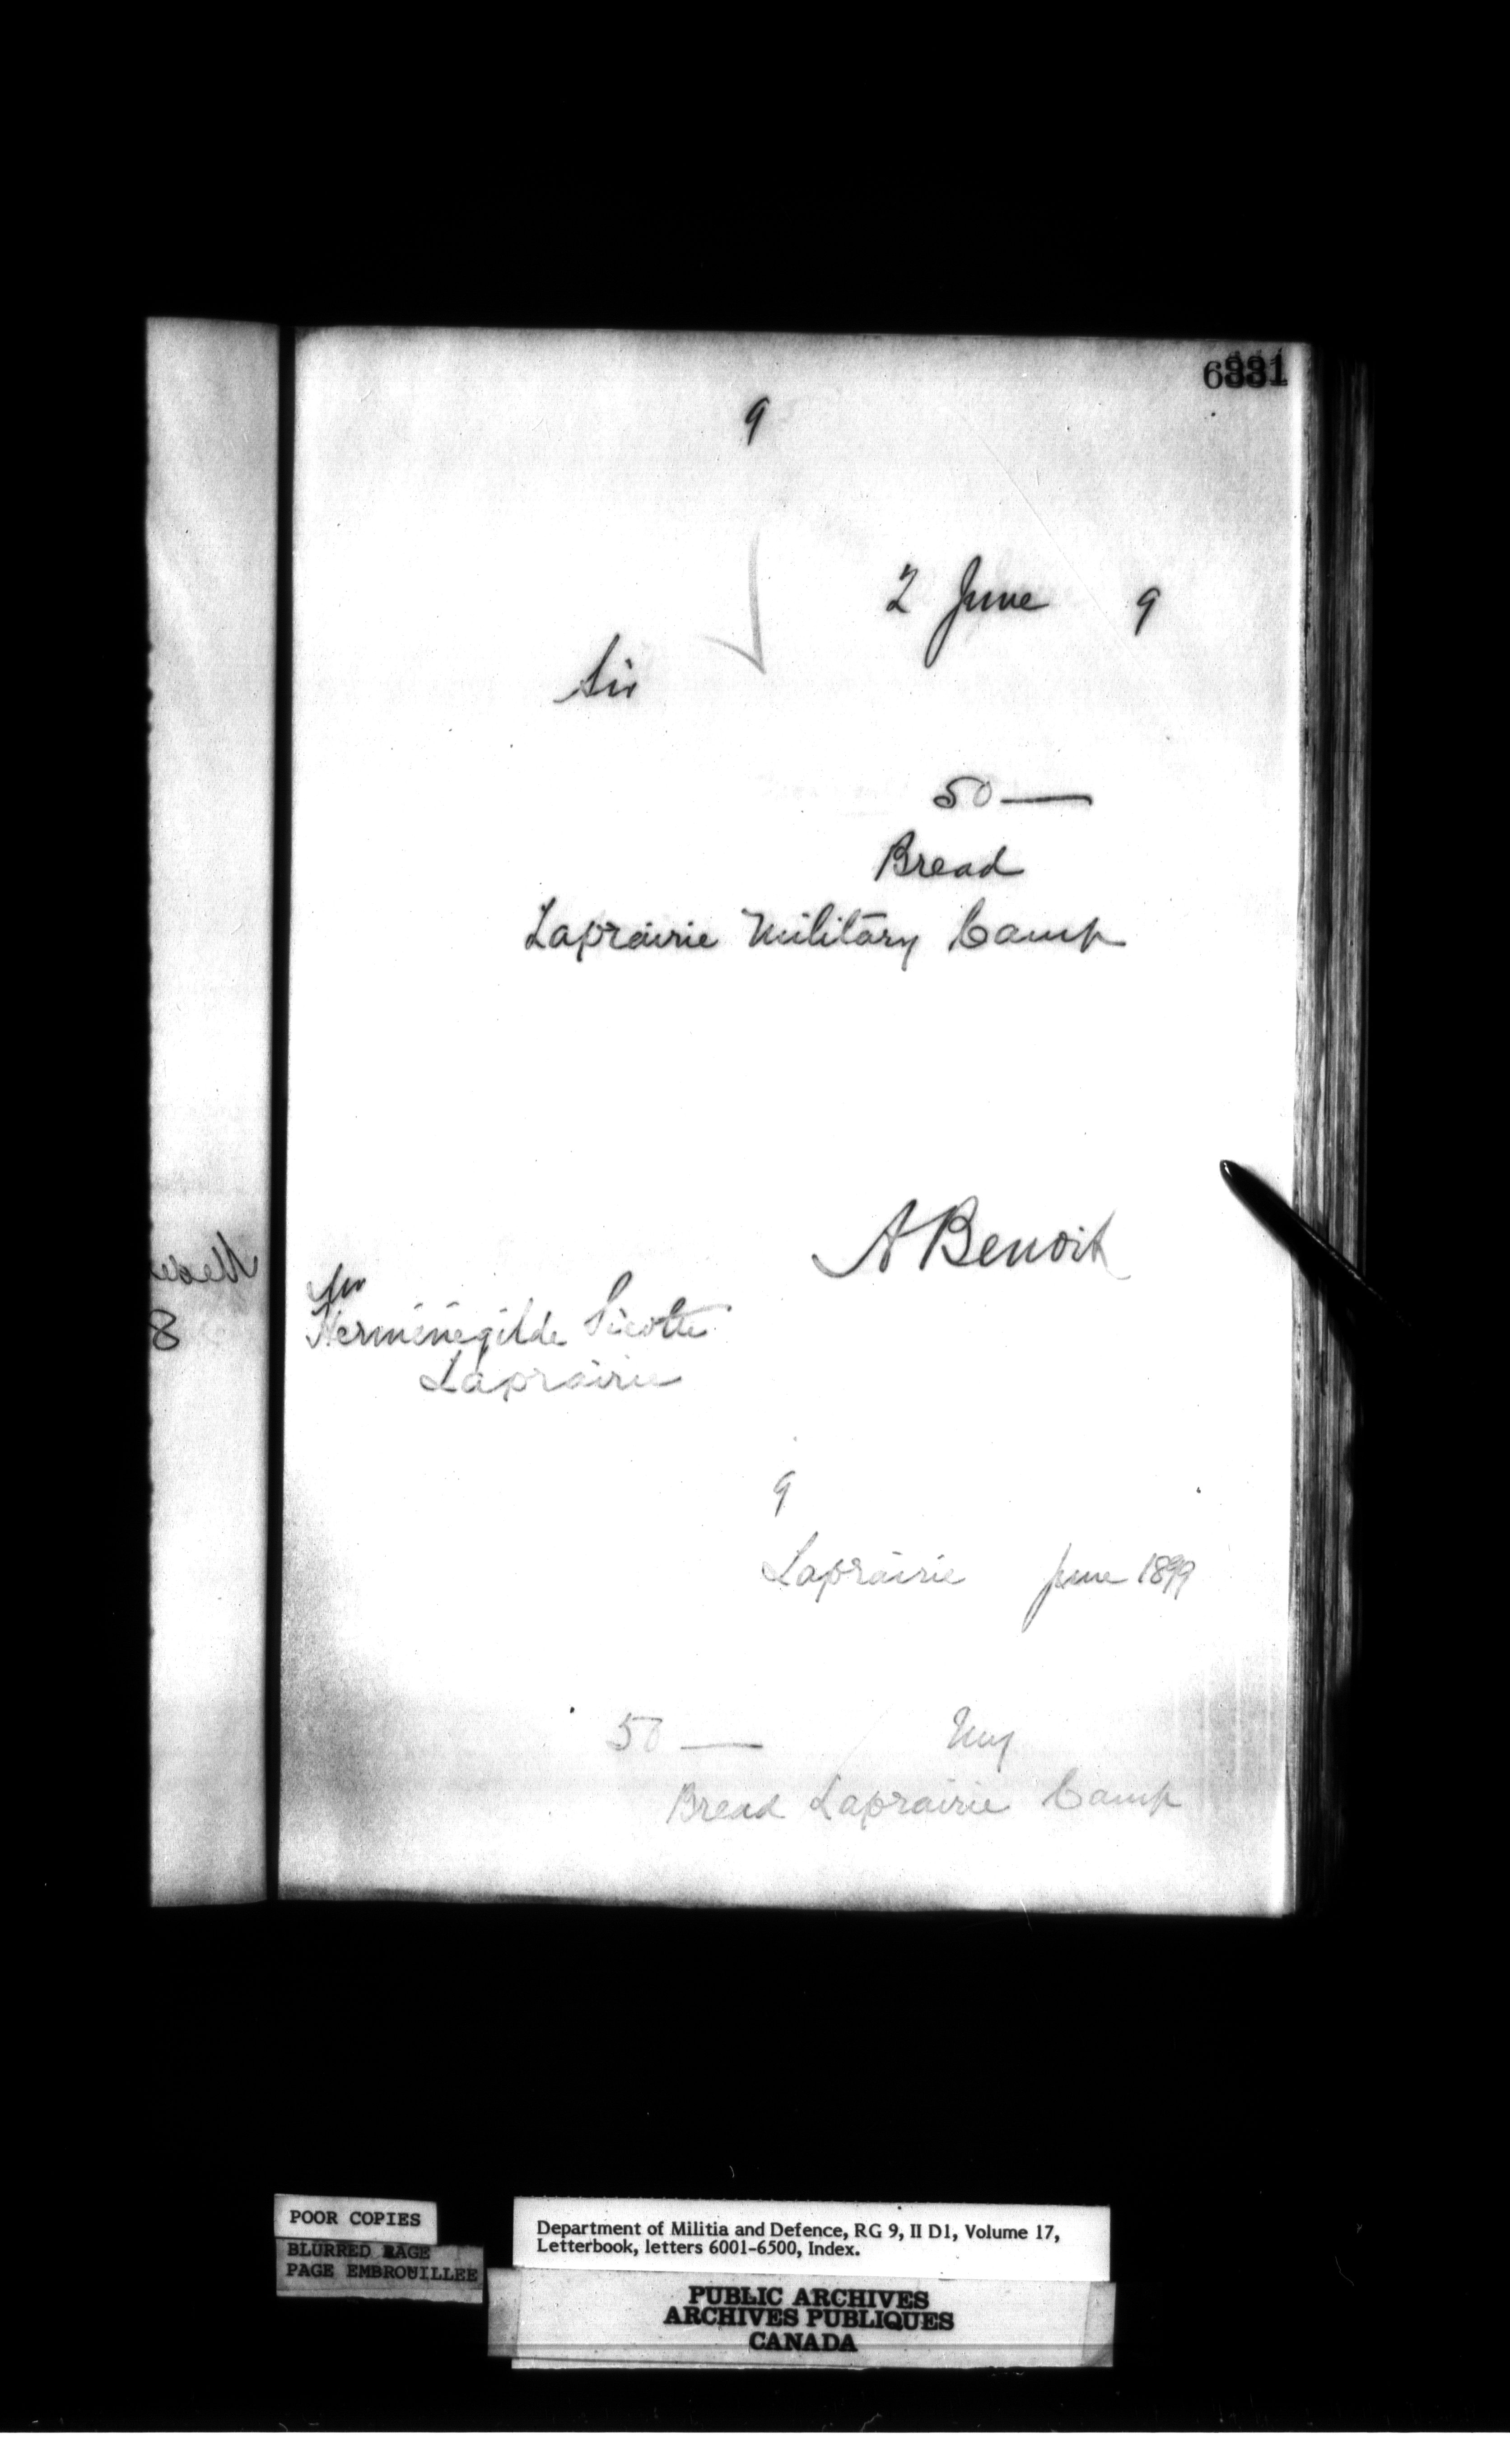 6331
9
2 June 9
Sir
50—
Bread
Laprairie Military Camp
A Benoit
Mr
Herménégilde Sicotte
Laprairie
9
Laprairie June 1899
50—
Bread Laprairie Camp
8
POOR COPIES
BLURRED PAGE
PAGE EMBROUILLEE
Department of Militia and Defence, RG 9, II D1, Volume 17,
Letterbook, letters 6001-6500, Index.
PUBLIC ARCHIVES
ARCHIVES PUBLIQUES
CANADA